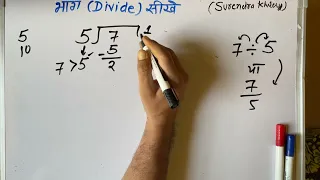 भाग (Divide) सीखे
(Surendra Khilery)
5
10
5) 7 ( 1
- 5
2
7 > 5
7 ÷ 5
या
7
5